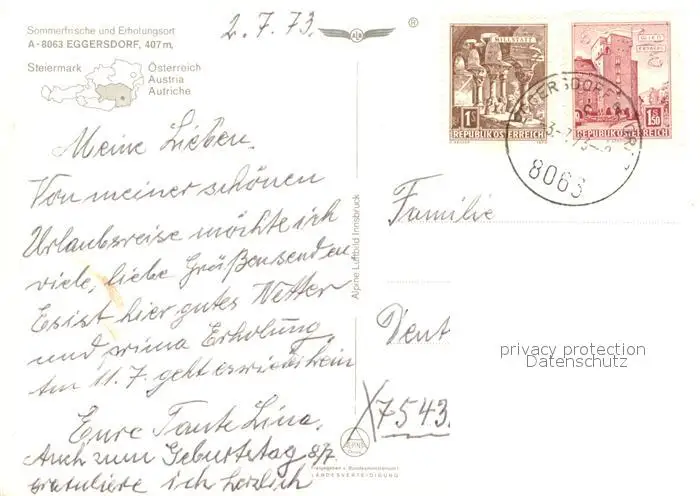 Sommerfrische und Erholungsort
A - 8063 EGGERSDORF, 407 m,
Steiermark
Österreich
Austria
Autriche
2.7.73.
®
Meine Lieben.
Von meiner schönen
Urlaubsreise möchte ich
viele, liebe Grüße senden
Es ist hier gutes Wetter
und prima Erholung
Am 11.7. geht es wieder heim
Eure Tante Lina.
Auch zum Geburtstag 8/7.
gratuliere ich herzlich
Alpine Luftbild Innsbruck
MILLSTATT
1S
REPUBLIK ÖSTERREICH
WIEN
ERDBERG
1.50
REPUBLIK ÖSTERREICH
8063
Familie
7543
privacy protection
Datenschutz
Freigegeben v. Bundesministerium f.
LANDESVERTEIDIGUNG